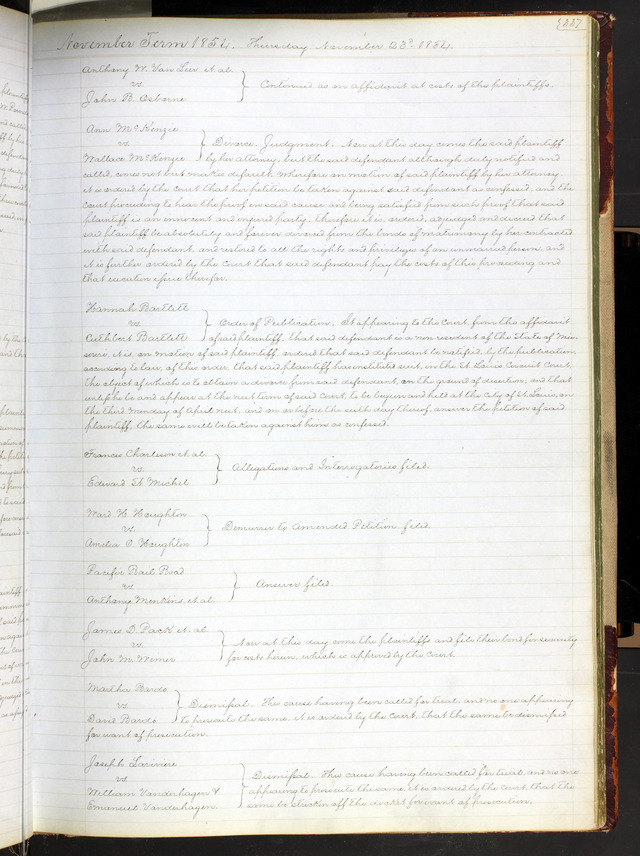 227
November Term 1854. Thursday November 23d. 1854.
Anthony W. Van Leer et. al.
vs.
John B. Osborne
Continued as on affidavit at costs of the plaintiffs.
Ann McKenzie
vs.
Wallace McKenzie
Divorce. Judgment. Now at this day comes the said plaintiff
by her attorney, but the said defendant although duly notified and
called, comes not but makes default. Wherefore on motion of said plaintiff by her attorney
it is ordered by the Court that her petition be taken against said defendant as confessed. and the
court proceeding to hear the proof in said cause and being satisfied from such proof that said
plaintiff is an innocent and injured party. therefore it is ordered, adjudged and decreed that
said plaintiff be absolutely and forever divorced from the bonds of matrimony by her contracted
with said defendant, and restored to all the rights and privileges of an unmarried person. and
it is further ordered by the Court that said defendant pay the costs of this proceeding and
that execution issue therefor.
Hannah Bartlett
vs.
Cuthbert Bartlett
Order of Publication. It appearing to the Court, from the affidavit
of said plaintiff, that said defendant is a non resident of the State of Mis-
souri it is, on motion of said plaintiff ordered that said defendant be notified, by the publication,
according to law, of this order, that said plaintiff has instituted suit, in the St. Louis Circuit Court
the object of which is to obtain a divorce from said defendant, on the ground of desertion, and that
unless he be and appear at the next term of said Court, to be begun and held at the City of St. Louis, on
the third Monday of April next, and on or before the sixth day thereof, answer the petition of said
plaintiff. the same will be taken against him as confessed.
Francis Charleson et. al.
vs.
Edward St. Michel
Allegations and Interrogatories filed.
Ward H. Houghton
vs.
Amelia C. Houghton
Demurrer to Amended Petition filed.
Pacific Rail Road
vs.
Anthony Menkens et. al.
Answer filed.
James D. Pack et. al.
vs.
John M. Wimer
Now at this day come the plaintiffs and file their bond for security
for costs herein, which is approved by the Court.
Martha Bardo
vs.
Bard Bardo
Dismissal. This cause having been called for trial, and no one appearing
to prosecute the same, it is ordered by the Court, that the same be dismissed
for want of prosecution.
Joseph Lariviere
vs.
William Vanderhagen &
Emanuel Vanderhagen.
Dismissal. This cause having been called for trial, and no one
appearing to prosecute the same, it is ordered by the Court, that the
same be stricken off the docket for want of prosecution.